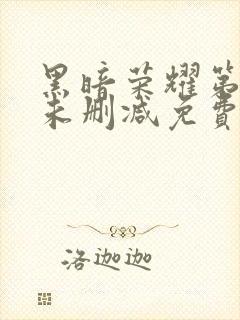 黑暗荣耀第
未删减免費
洛迦迦